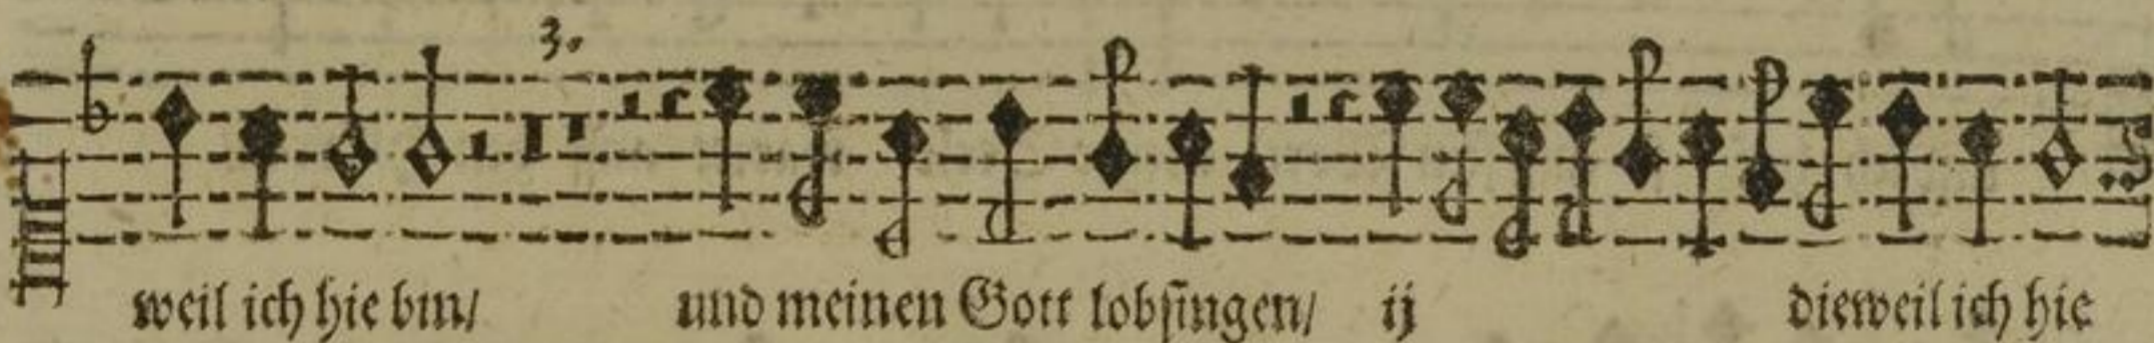 3.
weil ich hie bin/ und meinen Gott lobsingen/ ij dieweil ich hie